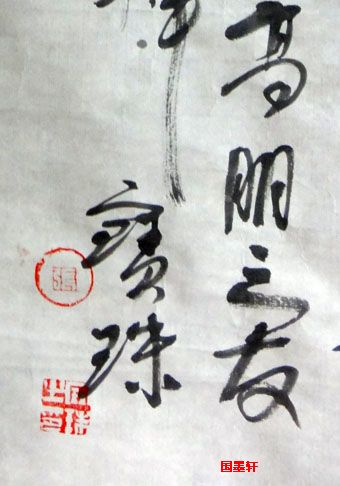 高朋之友
寶珠
張
國墨轩